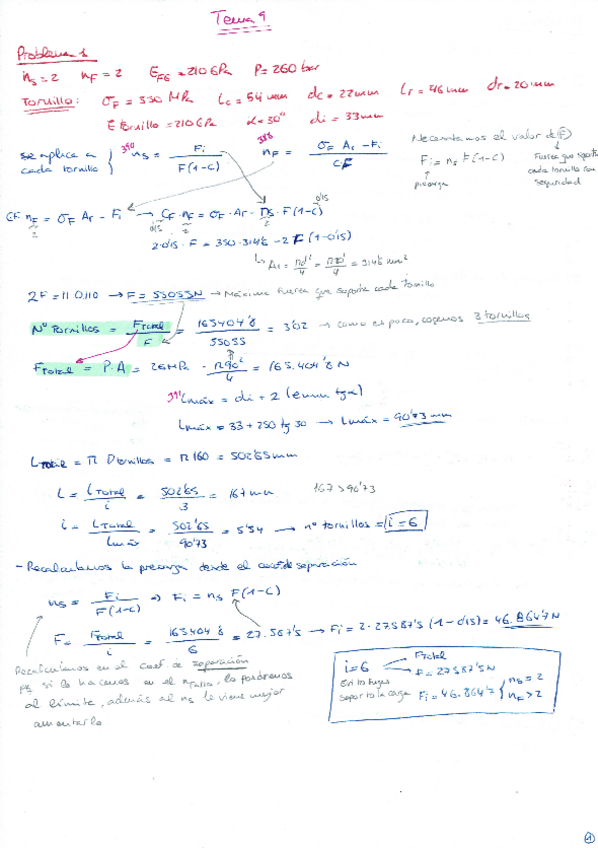 Tema 9
Problema 1
ns = 2 nF = 2 EFG = 210 GPa P = 260 bar
Tornillo: σF = 350 MPa Lc = 54 mm dc = 22 mm Lr = 46 mm dr = 20 mm
E tornillo = 210 GPa α = 30° di = 33 mm
se aplica a cada tornillo ns = Fi / F(1-C) nF = (σF Ar - Fi) / CF
Necesitamos el valor de F
Fi = ns F(1-C)
precarga
Fuerza que soporta cada tornillo con seguridad
CF nF = σF Ar - Fi → CF · nF = σF · Ar - ns · F(1-C)
2·0'15 · F = 350·314'6 - 2F (1-0'15)
Ar = πd²/4 = π20²/4 = 314'6 mm²
2F = 110.110 → F = 55055N → Máxima fuerza que soporta cada tornillo
Nº Tornillos = FTotal / F = 165404'8 / 55055 = 3'02 → como en poca, cogemos 3 tornillos
FTotal = P·A = 26 MPa · π90²/4 = 165.404'8 N
Lmáx = di + 2 (emm tg α)
Lmáx = 33 + 250 tg 30 → Lmáx = 90'73 mm
LTotal = π Dtornillos = π 160 = 502'65 mm
L = LTotal / i = 502'65 / 3 = 167 mm 167 > 90'73
i = LTotal / Lmáx = 502'65 / 90'73 = 5'54 → nº tornillos = i = 6
- Recalculamos la precarga desde el coef. de separación
ns = Fi / F(1-C) ⇒ Fi = ns F(1-C)
F = FTotal / i = 165404'8 / 6 = 27.567'5 → Fi = 2·27567'5 (1-0'15) = 46.864'7 N
Recalculamos en el coef de separación
pq si lo hacemos en el nFalla, lo pondremos
al límite, además al ns le viene mejor
aumentarlo
i = 6 FTotal
F = 27567'5 N
soporta la carga Fi = 46.864'7 ns = 2
nF > 2
1